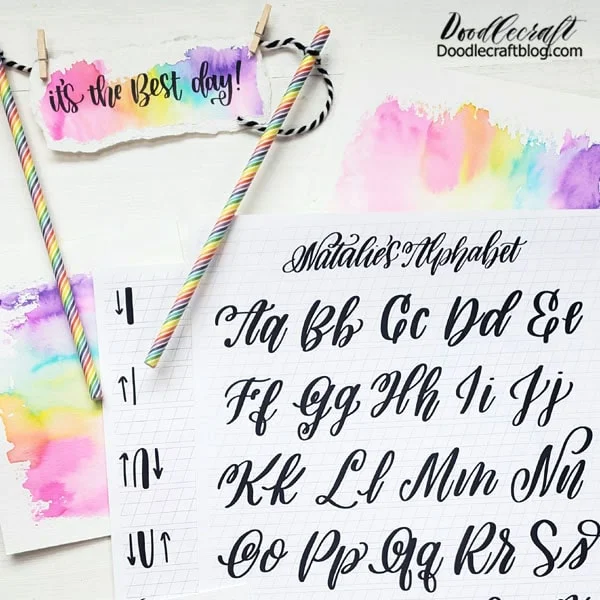 Doodlecraft
Doodlecraftblog.com
it's the Best day!
Natalie's Alphabet
Aa Bb Cc Dd Ee
Ff Gg Hh Ii Jj
Kk Ll Mm Nn
Oo Pp Qq Rr Ss